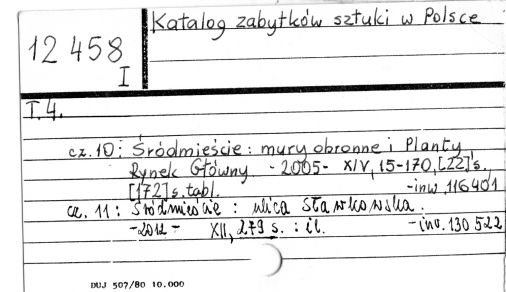 Katalog zabytków sztuki w Polsce
12 458
I
T.4.
cz.10: Śródmieście: mury obronne i Planty,
Rynek Główny - 2005 - XIV, 15-170, [22] s.
[172] s. tabl. - inw. 116401
cz. 11: Śródmieście: ulica Sławkowska.
- 2012 - XII, 279 s. : il. - inv. 130 522
DUJ 507/80 10.000